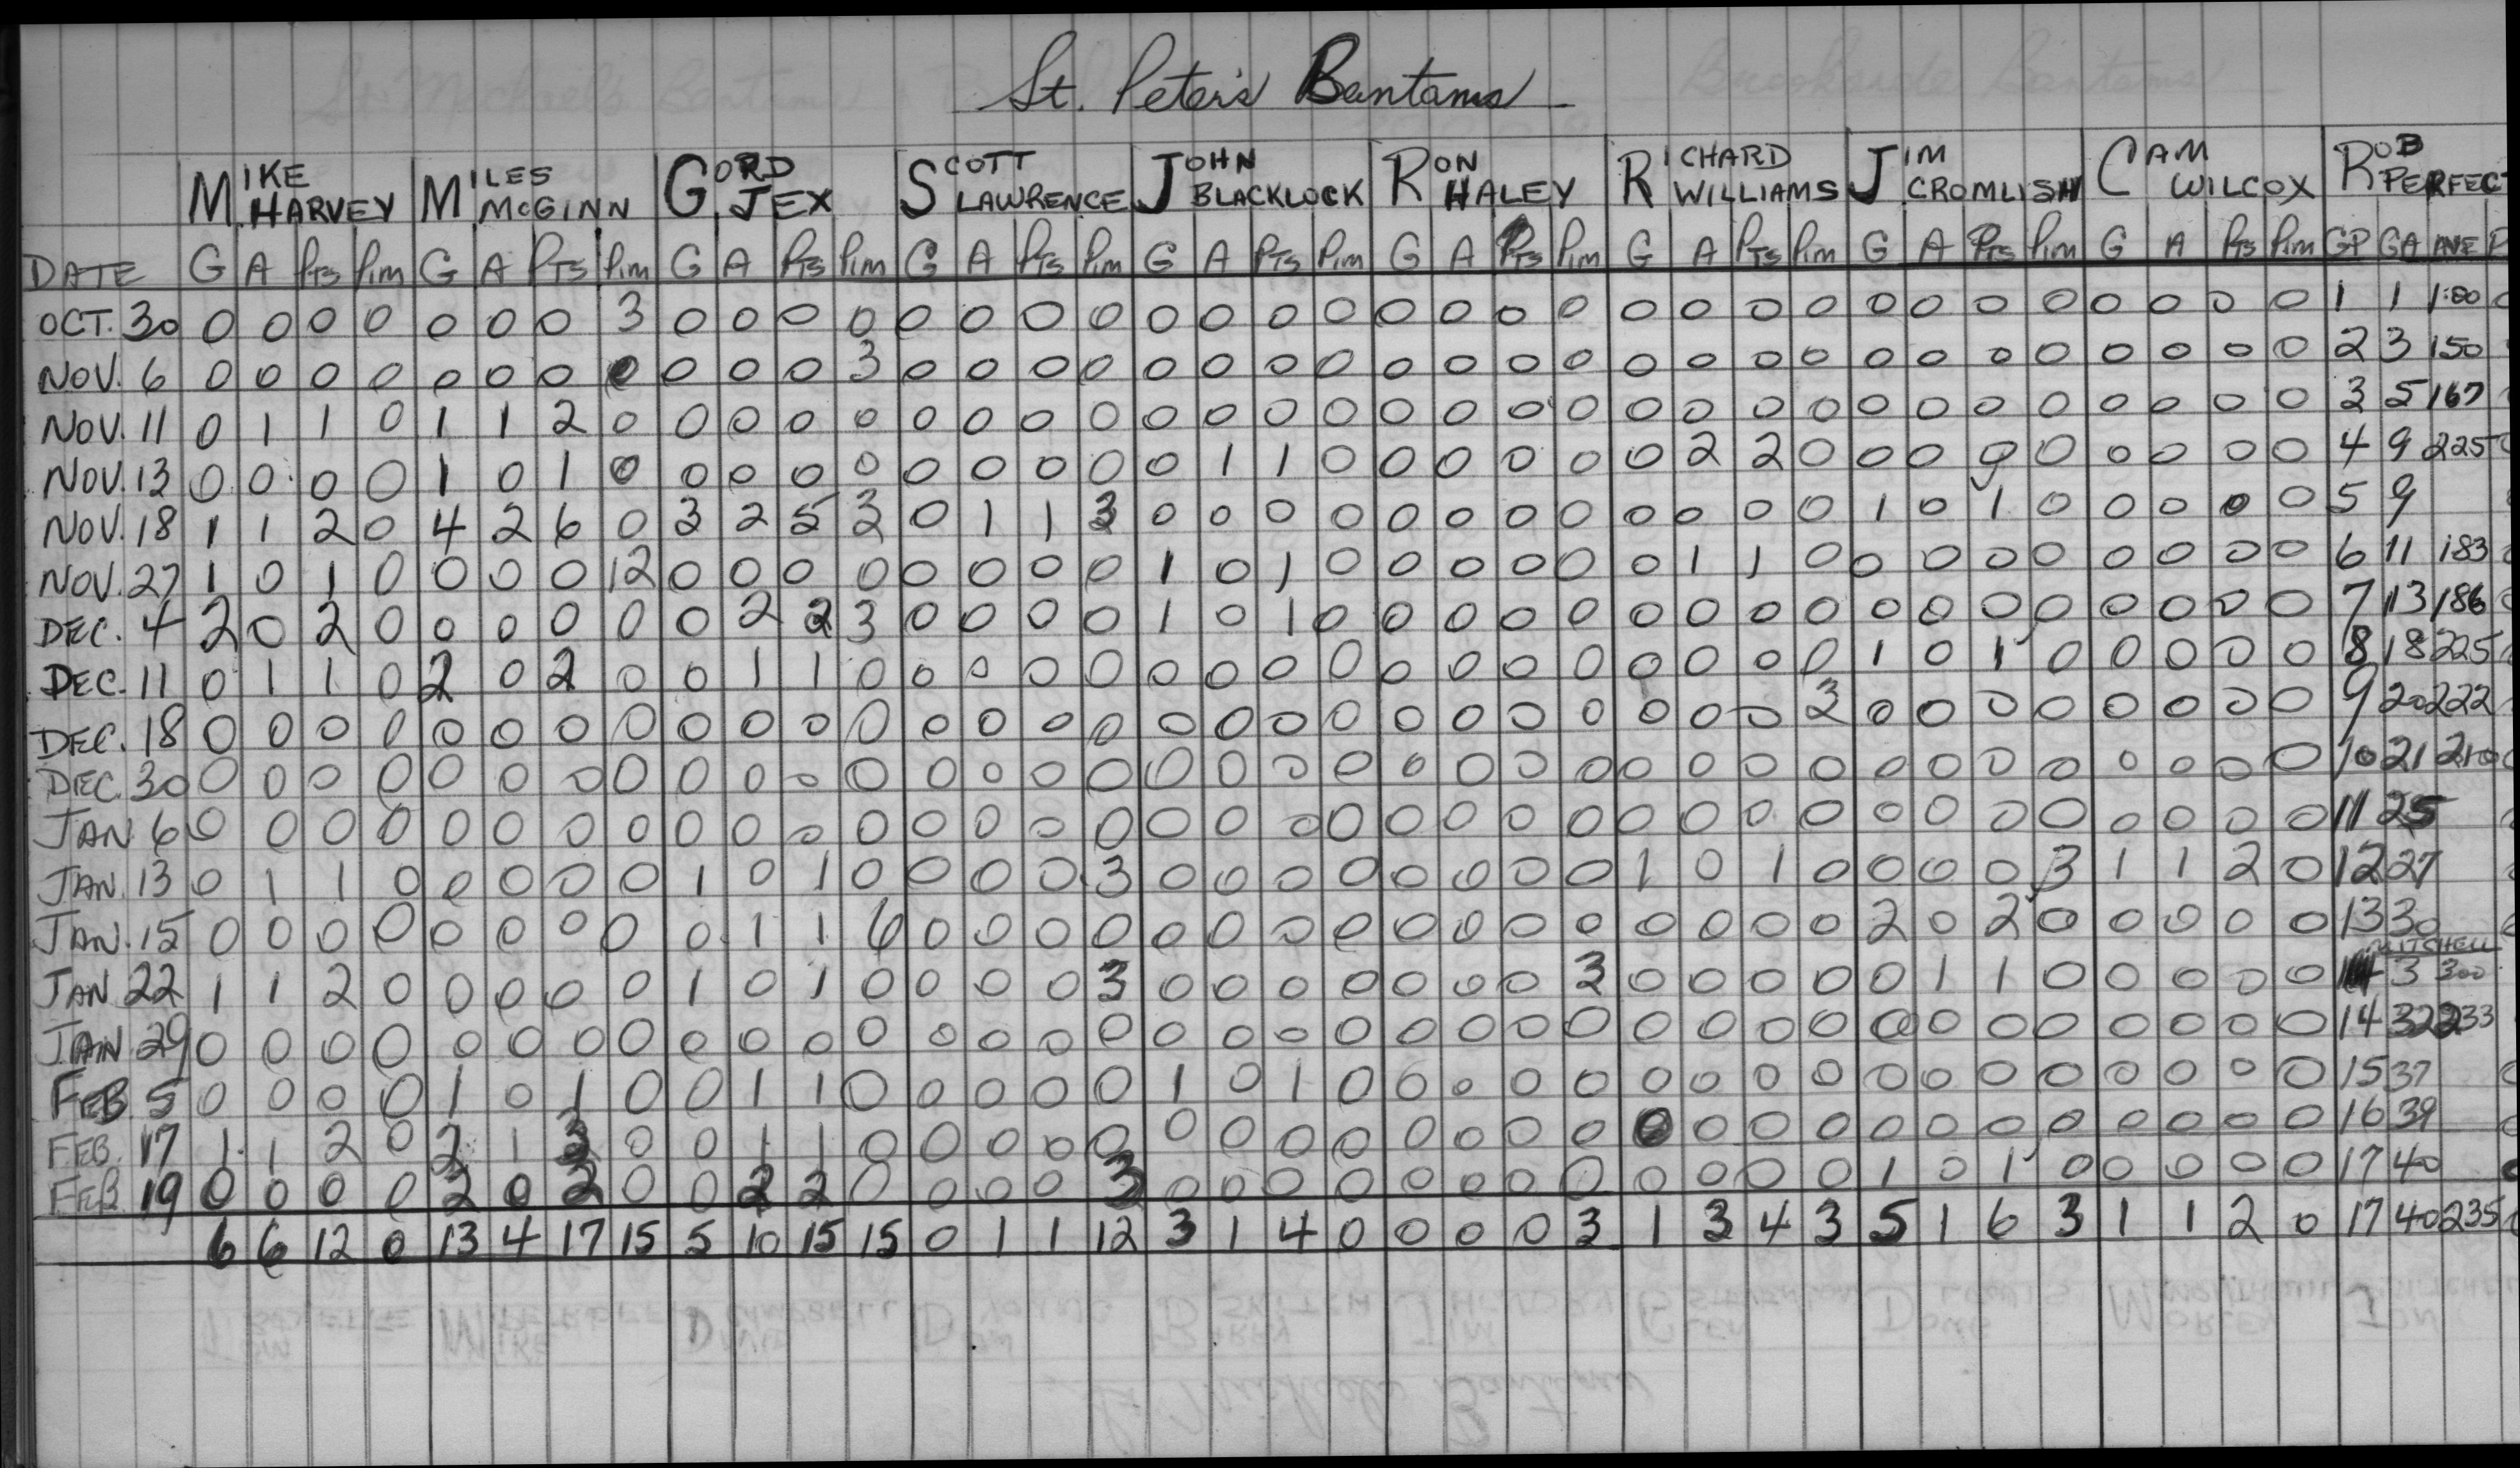 St. Peter's Bantams
MIKE HARVEY MILES McGINN GORD JEX SCOTT LAWRENCE JOHN BLACKLOCK RON HALEY RICHARD WILLIAMS JIM CROMLISH CAM WILCOX ROB PERFECT
DATE G A Pts Pim G A Pts Pim G A Pts Pim G A Pts Pim G A Pts Pim G A Pts Pim G A Pts Pim G A Pts Pim G A Pts Pim GP GA AVE
OCT. 30 0 0 0 0 0 0 0 3 0 0 0 0 0 0 0 0 0 0 0 0 0 0 0 0 0 0 0 0 0 0 0 0 0 0 0 0 1 1 1:00
NOV. 6 0 0 0 0 0 0 0 0 0 0 0 3 0 0 0 0 0 0 0 0 0 0 0 0 0 0 0 0 0 0 0 0 0 0 0 0 2 3 150
NOV. 11 0 1 1 0 1 1 2 0 0 0 0 0 0 0 0 0 0 0 0 0 0 0 0 0 0 0 0 0 0 0 0 0 0 0 0 0 3 5 167
NOV. 13 0 0 0 0 1 0 1 0 0 0 0 0 0 0 0 0 0 1 1 0 0 0 0 0 0 2 2 0 0 0 0 0 0 0 0 0 4 9 225
NOV. 18 1 1 2 0 4 2 6 0 3 2 5 3 0 1 1 3 0 0 0 0 0 0 0 0 0 0 0 0 1 0 1 0 0 0 0 0 5 9
NOV. 27 1 0 1 0 0 0 0 12 0 0 0 0 0 0 0 0 1 0 1 0 0 0 0 0 0 1 1 0 0 0 0 0 0 0 0 0 6 11 183
DEC. 4 2 0 2 0 0 0 0 0 0 2 2 3 0 0 0 0 1 0 1 0 0 0 0 0 0 0 0 0 0 0 0 0 0 0 0 0 7 13 186
DEC. 11 0 1 1 0 2 0 2 0 0 1 1 0 0 0 0 0 0 0 0 0 0 0 0 0 0 0 0 0 1 0 1 0 0 0 0 0 8 18 225
DEC. 18 0 0 0 0 0 0 0 0 0 0 0 0 0 0 0 0 0 0 0 0 0 0 0 0 0 0 0 3 0 0 0 0 0 0 0 0 9 20 222
DEC. 30 0 0 0 0 0 0 0 0 0 0 0 0 0 0 0 0 0 0 0 0 0 0 0 0 0 0 0 0 0 0 0 0 0 0 0 0 10 21 210
JAN 6 0 0 0 0 0 0 0 0 0 0 0 0 0 0 0 0 0 0 0 0 0 0 0 0 0 0 0 0 0 0 0 0 0 0 0 0 11 25
JAN. 13 0 1 1 0 0 0 0 0 1 0 1 0 0 0 0 3 0 0 0 0 0 0 0 0 1 0 1 0 0 0 0 3 1 1 2 0 12 27
JAN. 15 0 0 0 0 0 0 0 0 0 1 1 6 0 0 0 0 0 0 0 0 0 0 0 0 0 0 0 0 2 0 2 0 0 0 0 0 13 30
MITCHELL
JAN 22 1 1 2 0 0 0 0 0 1 0 1 0 0 0 0 3 0 0 0 0 0 0 0 3 0 0 0 0 0 1 1 0 0 0 0 0 3 300
JAN 29 0 0 0 0 0 0 0 0 0 0 0 0 0 0 0 0 0 0 0 0 0 0 0 0 0 0 0 0 0 0 0 0 0 0 0 0 14 32 233
FEB 5 0 0 0 0 1 0 1 0 0 1 1 0 0 0 0 0 1 0 1 0 0 0 0 0 0 0 0 0 0 0 0 0 0 0 0 0 15 37
FEB. 17 1 1 2 0 2 1 3 0 0 1 1 0 0 0 0 0 0 0 0 0 0 0 0 0 0 0 0 0 0 0 0 0 0 0 0 0 16 39
FEB. 19 0 0 0 0 2 0 2 0 0 2 2 0 0 0 0 3 0 0 0 0 0 0 0 0 0 0 0 0 1 0 1 0 0 0 0 0 17 40
6 6 12 0 13 4 17 15 5 10 15 15 0 1 1 12 3 1 4 0 0 0 0 3 1 3 4 3 5 1 6 3 1 1 2 0 17 40 235